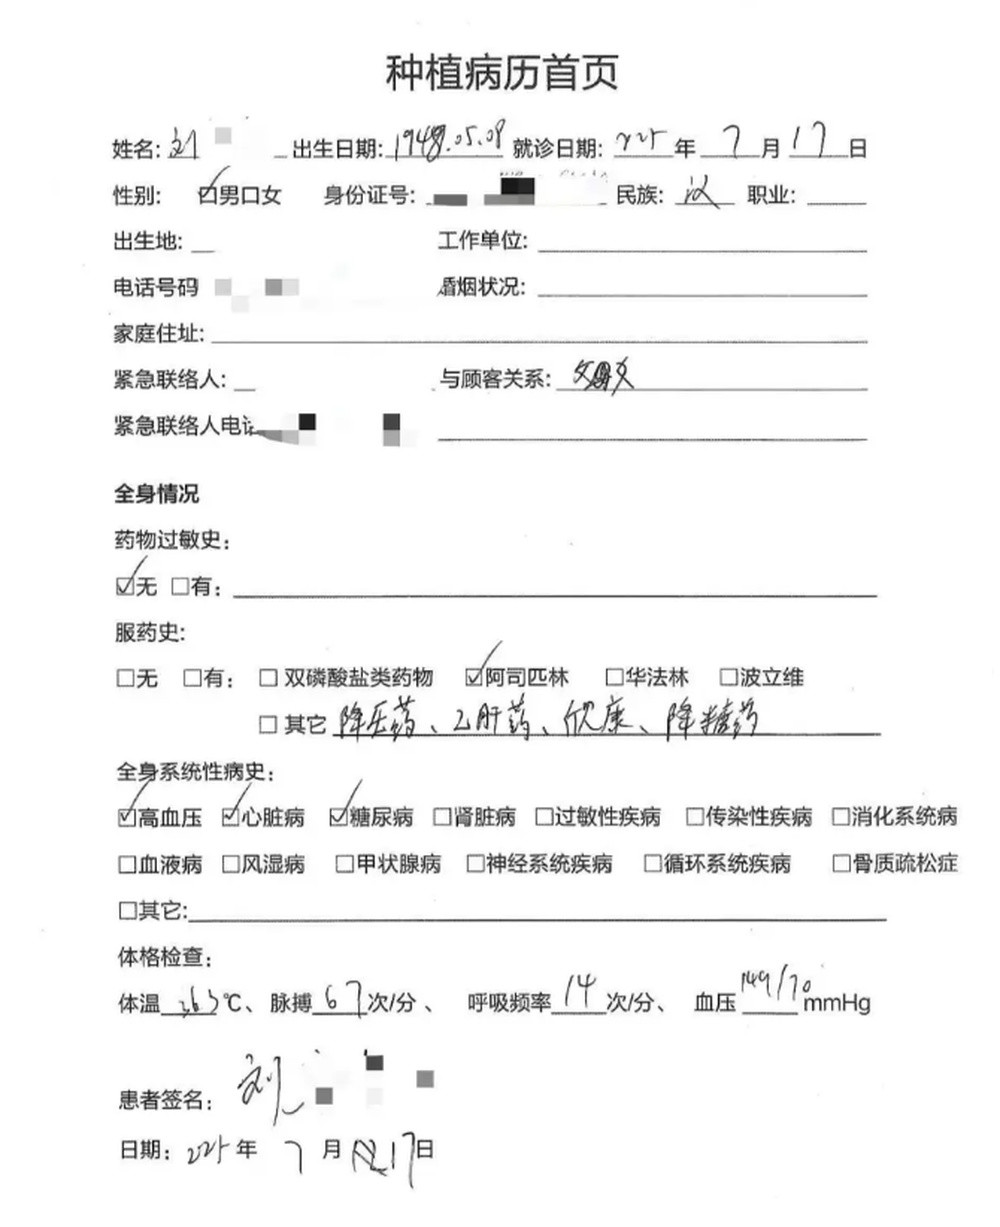 种植病历首页
姓名: 刘 出生日期: 1948.05.08 就诊日期: 2025 年 7 月 17 日
性别: ☑男口女 身份证号: 民族: 汉 职业:
出生地: 工作单位:
电话号码 婚烟状况:
家庭住址:
紧急联络人: 与顾客关系:
紧急联络人电话
全身情况
药物过敏史:
☑无 □有:
服药史:
□无 □有: □ 双磷酸盐类药物 ☑阿司匹林 □华法林 □波立维
□ 其它 降压药、乙肝药、欣康、降糖药
全身系统性病史:
☑高血压 ☑心脏病 ☑糖尿病 □肾脏病 □过敏性疾病 □传染性疾病 □消化系统病
□血液病 □风湿病 □甲状腺病 □神经系统疾病 □循环系统疾病 □骨质疏松症
□其它:
体格检查:
体温 363 ℃、 脉搏 67 次/分、 呼吸频率 14 次/分、 血压 149/70 mmHg
患者签名: 刘
日期: 2025 年 7 月 17日